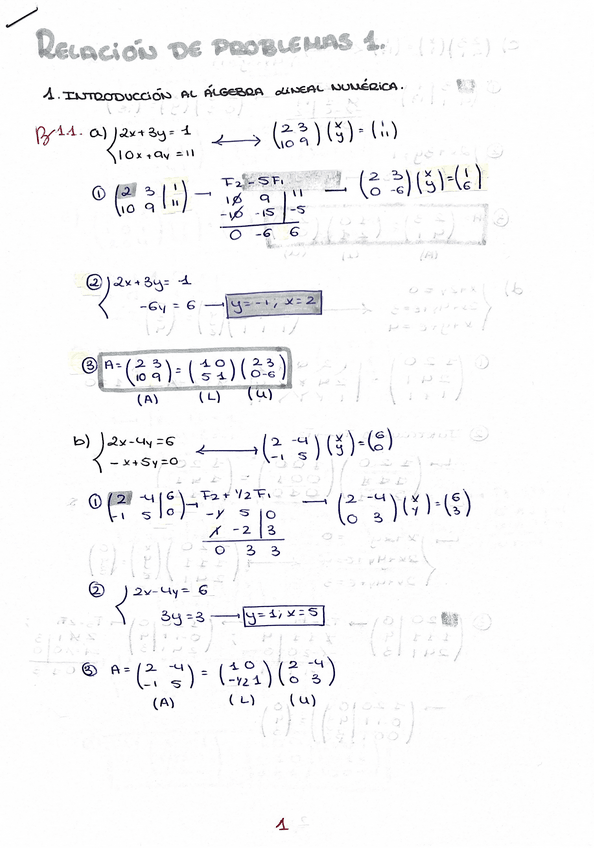 RELACIÓN DE PROBLEMAS 1.
1. INTRODUCCIÓN AL ÁLGEBRA LINEAL NUMÉRICA.
P 11. a) { 2x+3y = 1 ; 10x+9y = 11 ⟷ (2 3 ; 10 9) (x ; y) = (1 ; 11)
① (2 3 | 1 ; 10 9 | 11) → F2 - 5F1 → (2 3 ; 0 -6) (x ; y) = (1 ; 6)
10 9 | 11
-10 -15 | -5
0 -6 6
② { 2x+3y = 1
-6y = 6 → y=-1, x=2
③ A = (2 3 ; 10 9) = (1 0 ; 5 1) (2 3 ; 0 -6)
(A) (L) (U)
b) { 2x-4y=6 ; -x+5y=0 ⟷ (2 -4 ; -1 5) (x ; y) = (6 ; 0)
① (2 -4 | 6 ; -1 5 | 0) → F2 + 1/2 F1 → (2 -4 ; 0 3) (x ; y) = (6 ; 3)
-1 5 | 0
1 -2 | 3
0 3 3
② { 2x-4y = 6
3y = 3 → y=1, x=5
③ A = (2 -4 ; -1 5) = (1 0 ; -1/2 1) (2 -4 ; 0 3)
(A) (L) (U)
1